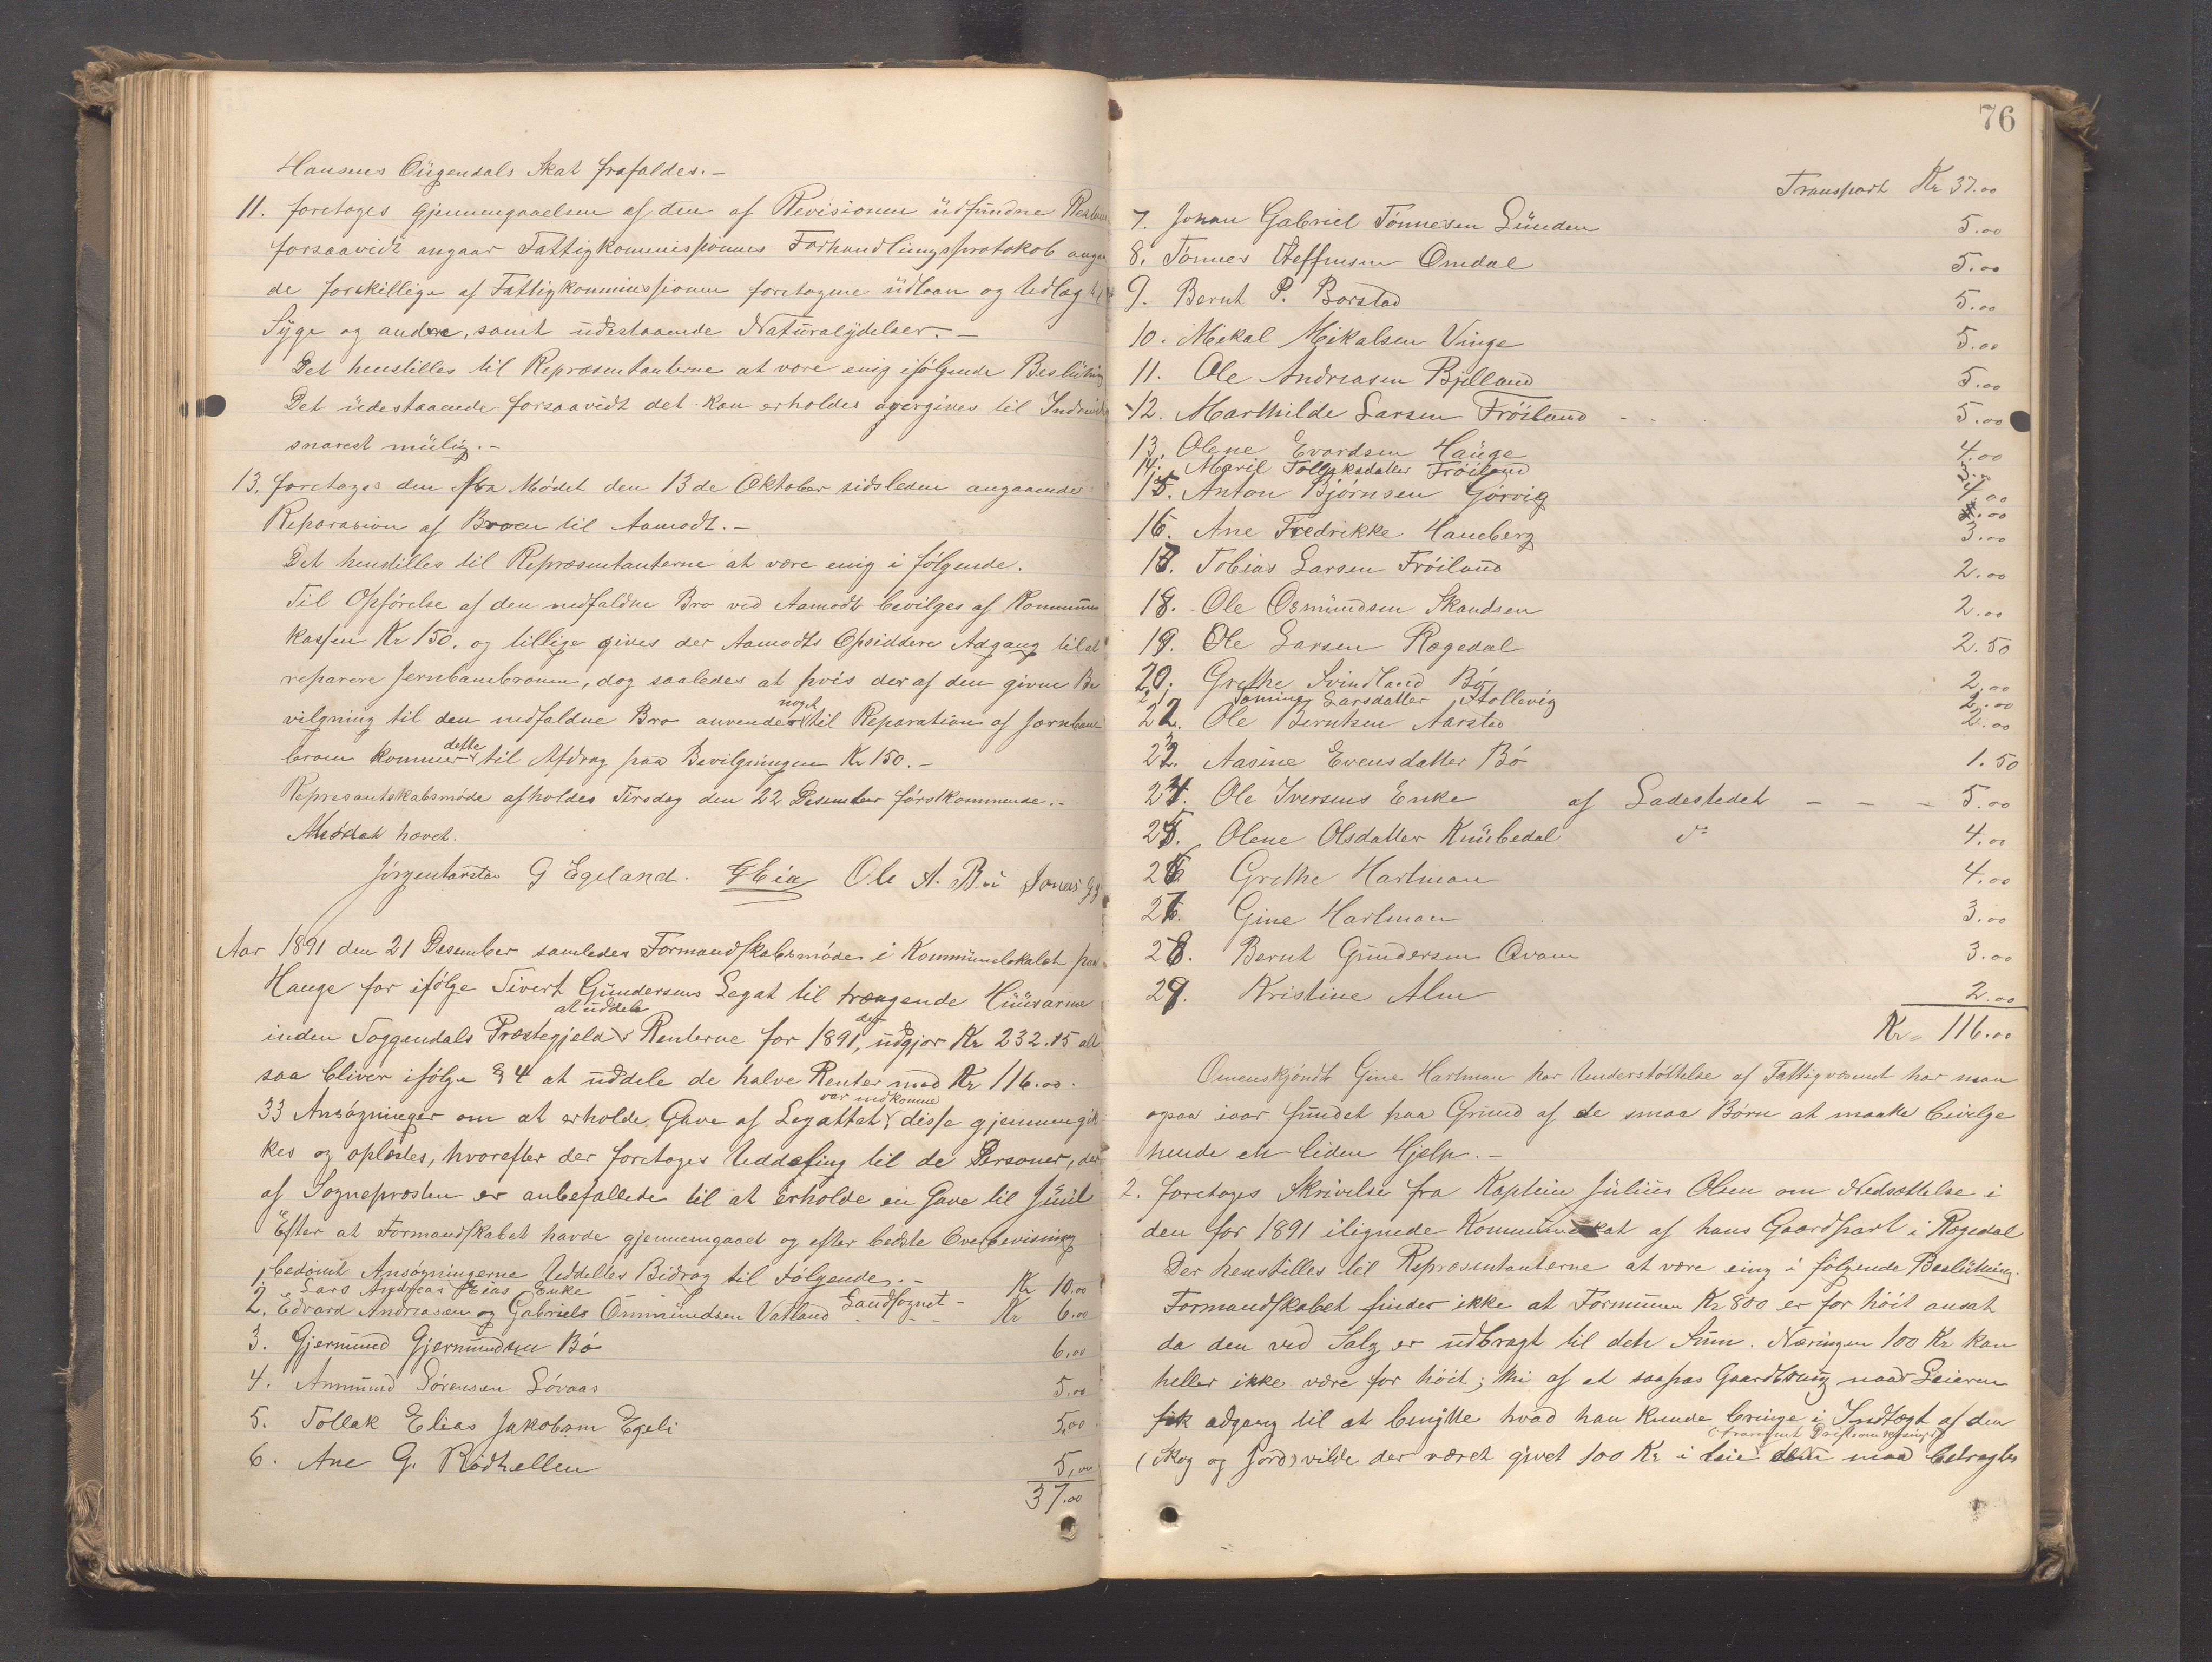 Hansens Öügendals Skat frafaldes.-
11. foretoges Gjennemgaaelsen af den af Revisionen üdfündne
forsaavidt angaar Fattigkommissionens Forhandlingsprotokol
de forskillige af Fattigkommissionen foretagne üdlaan og Udlæg
Syge og andre, samt üdestaaende Naturalydelser.-
Det henstilles til Repræsentanterne at være enig ifölgende Beslütning
Det üdestaaende forsaavidt det kan erholdes overgives til
snarest mülig.-
13. foretoges den fra Mödet den 13de Oktober sidsleden angaaende
Reparasion af Broen til Aamodt.-
Det henstilles til Repræsentanterne at være enig i fölgende.
Til Opförelse af den nedfaldne Bro ved Aamodt bevilges af Kommune
kassen Kr 150. og tillige gives der Aamodts Opsiddere Adgang til at
reparere Jernbanebroen, dog saaledes at hvis der af den givne Be
vilgning til den nedfaldne Bro anvendes noget til Reparation af Jernbane
broen kommer dette til Afdrag paa Bevilgningen Kr 150.-
Represantskabsmöde afholdes Tirsdag den 22 Desember förstkommende.-
Mödet hævet.
Jörgen Aarstad G Egeland. Ole A. Bö Jonas
Aar 1891 den 21 Desember samledes Formandskabsmöde i Kommünelokalet paa
Hauge for ifölge Sivert Gündersens Legat til trængende Hüüsarme
inden Soggendals Præstegjeld at üddele Renterne for 1891, der üdgjör Kr 232.15 alt
saa bliver ifölge § 4 at üddele de halve Renter med Kr 116.00.
33 Ansögninger om at erholde Gave af Legattet var indkomne disse gjennemgik
kes og oplæstes, hvorefter der foretoges Uddeling til de Personer, der
af Sogneprosten er anbefallede til at erholde en Gave til Juul
Efter at Formandskabet havde gjennemgaaet og efter bedste Overbevisning
bedömt Ansögningerne Uddeltes Bidrag til Fölgende.-
1. Lars Andreas Eias Enke Kr 10.00
2. Edvard Andreasen og Gabriels Ommündsen Vatland Landsognet - Kr 6.00
3. Gjermünd Gjermündsen Bö 6.00
4. Ammünd Sörensen Lövaas 5.00
5. Tollak Elias Jakobsen Egeli 5.00
6. Ane G. Rödhellen 5.00
37.00
76
Transport Kr 37.00
7. Johan Gabriel Tönnesen Lünden 5.00
8. Tönnes Steffensen Omdal 5.00
9. Bernt P. Borstad 5.00
10. Mikal Mikalsen Vinge 5.00
11. Ole Andreasen Bjelland 5.00
12. Marthilde Larsen Fröiland - - 5.00
13. Olene Evardsen Haüge 4.00
14. Maril Tollaksdatter Fröiland 3.00
15. Anton Bjørnsen Görvig 4.00
16. Ane Fredrikke Haneberg 3.00
17. Tobias Larsen Fröiland 2.00
18. Ole Osmündsen Skandsen 2.00
19. Ole Larsen Rægedal 2.50
20. Grethe Svindland Bö 2.00
21. Larsdatter Stollevig 2.00
22. Ole Berntsen Aarstad 2.00
23. Aasine Evensdatter Bö 1.50
24. Ole Iversens Enke af Ladestedet - - - 5.00
25. Olene Olsdatter Knübedal do 4.00
26. Grethe Hartman 4.00
27. Gine Hartman 3.00
28. Bernt Gündersen Qvam 3.00
29. Kristine Alm 2.00
Kr = 116.00
Omenskjöndt Gine Hartman har Understöttelse af Fattigvæsenet har man
ogsaa ivær fündet paa Gründ af de smaa Börn at maatte bevilge
hende en liden Hjelp.-
2. foretoges Skrivelse fra Kaptein Jülius Olsen om Nedsættelse i
den for 1891 ilignede Kommuneskat af hans Gaardpart i Rægedal
Der henstilles til Repræsentanterne at være enig i fölgende Beslütning.
Formandskabet finder ikke at Formuen Kr 800 er for höit ansat
da den ved Salg er üdbragt til dette Sum. Næringen 100 Kr kan
heller ikke være for höit; thi af et saapas Gaardbrüg naar Leieren
fik adgang til at benytte hvad han kunde bringe i Indtægt af den
(Skog og Jord) vilde der været givet 100 Kr i Leie maa betragtes